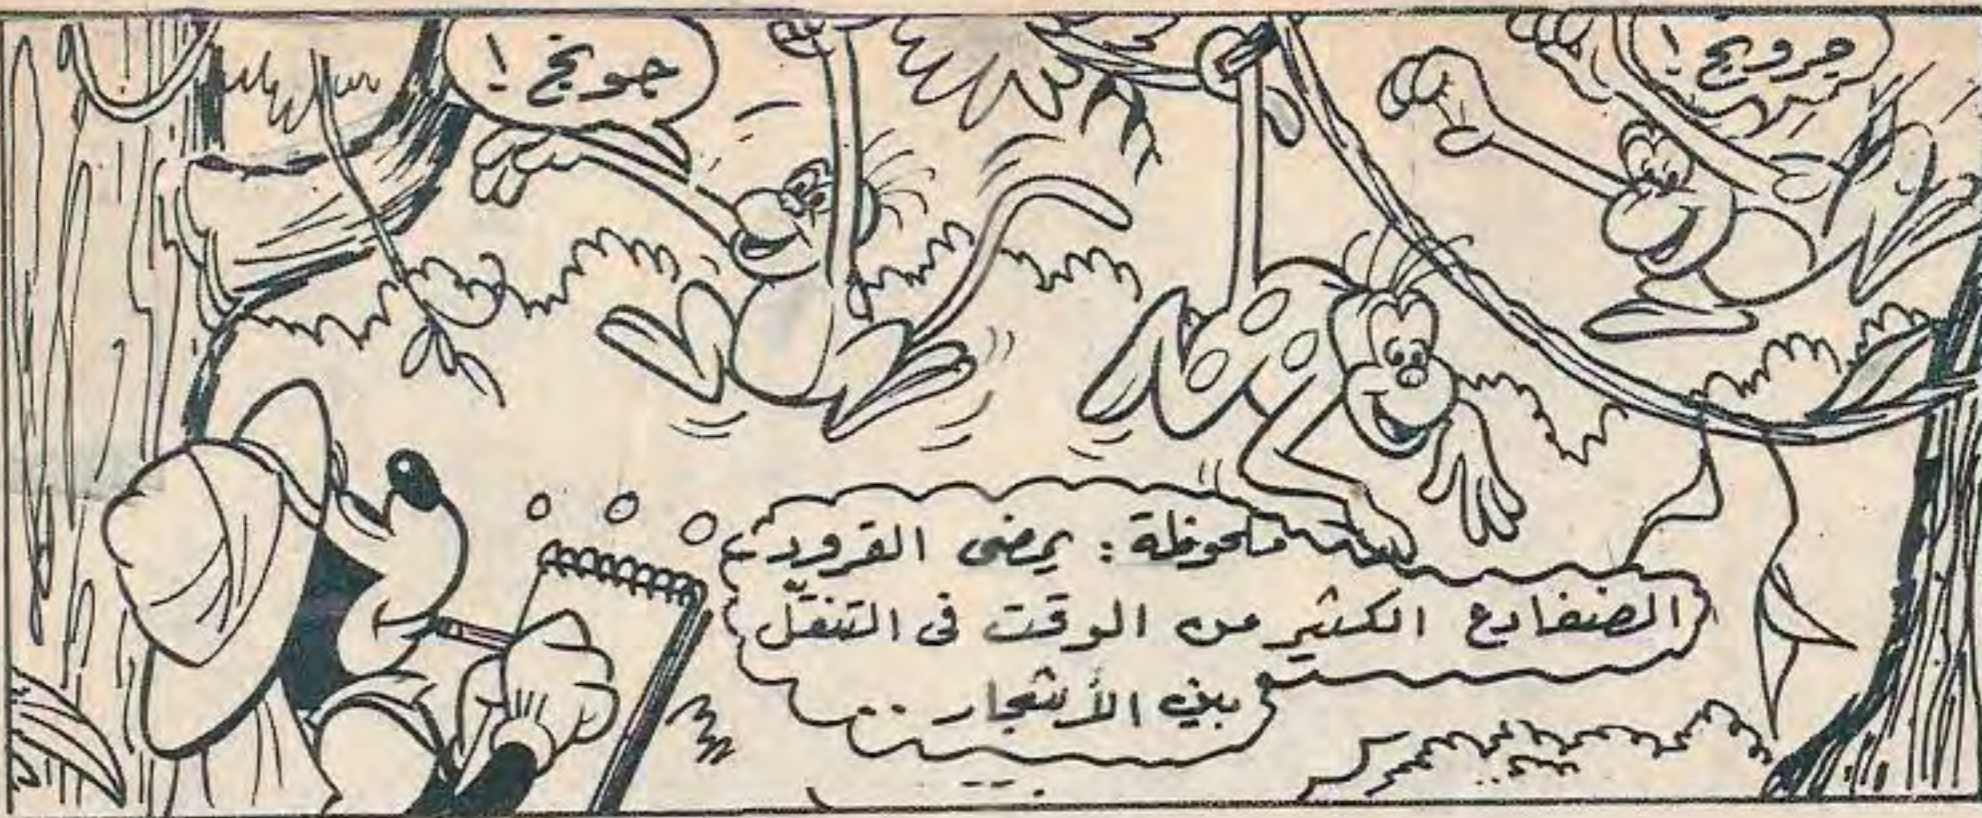 جرويج!
جونج!
ملحوظة: يمضى القرود
الضفادع الكثير من الوقت فى التنقّل
بين الأشجار ..